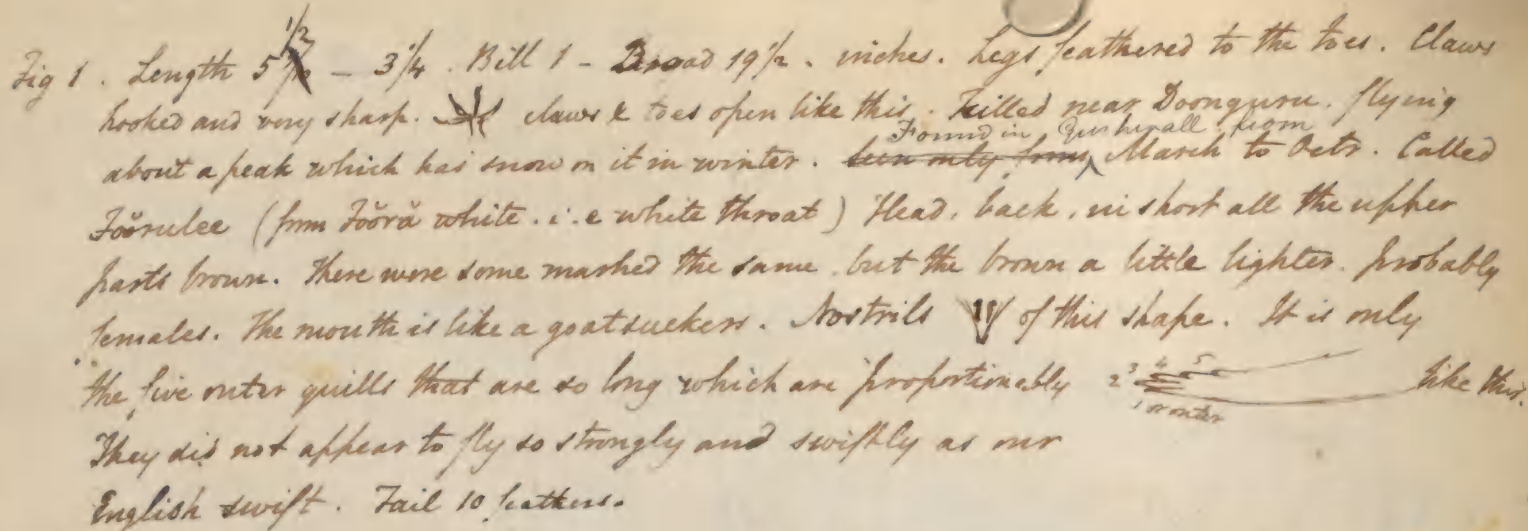 Fig 1. Length 5 1/2 - 3 1/4. Bill 1 - Broad 19 1/2. inches. Legs feathered to the toes. Claws
hooked and very sharp. claws & toes open like this. Killed near Doonguru. flying
Found in from
about a peak which has snow on it in winter. seen only from March to Octr. Called
(from white. i.e white throat) Head, back, in short all the upper
parts brown. There were some marked the same. but the brown a little lighter. probably
females. The mouth is like a goatsuckers. Nostrils of this shape. It is only
the five outer quills that are so long which are proportionably 2 3 4 5 like this.
1 or outer
They did not appear to fly so strongly and swiftly as our
English swift. Tail 10 feathers.